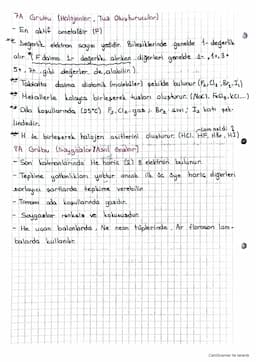 7A Grubu (Halojenler, Tuz Oluşturucular)
- En aktif ametaldir (F)
* Değerlik elektron sayısı yedidir. Bileşiklerinde genelde 1- değerlik
alır. (F daima 1- değerlik alırken diğerleri genelde 1-, 1+, 3+
5+, 7+ gibi değerler de alabilir.)
* Tabiatta daima diatomik (moleküler) şekilde bulunur (F2, Cl2, Br2, I2)
* Metallerle kolayca birleşerek tuzları oluşturur. (NaCl, KCl...)
* Oda koşullarında (25°C) F2, Cl2 gaz, Br2 sıvı, I2 katı şek-
lindedir.
* H ile birleşerek halojen asitlerini oluşturur. (HCl, HF, HBr, HI)
8A Grubu (Soygazlar/Asal Gazlar)
- Son katmanlarında He hariç (2) 8 elektron bulunur.
- Tepkime yatkınlıkları yoktur ancak ilk üç üye hariç diğerleri
zorlayıcı şartlarda tepkime verebilir.
- Tamamı oda koşullarında gazdır.
- Soygazlar renksiz ve kokusuzdur.
- He uçan balonlarda, Ne neon tüplerinde, Ar florasan lam-
balarda kullanılır.
CamScanner ile tarandı